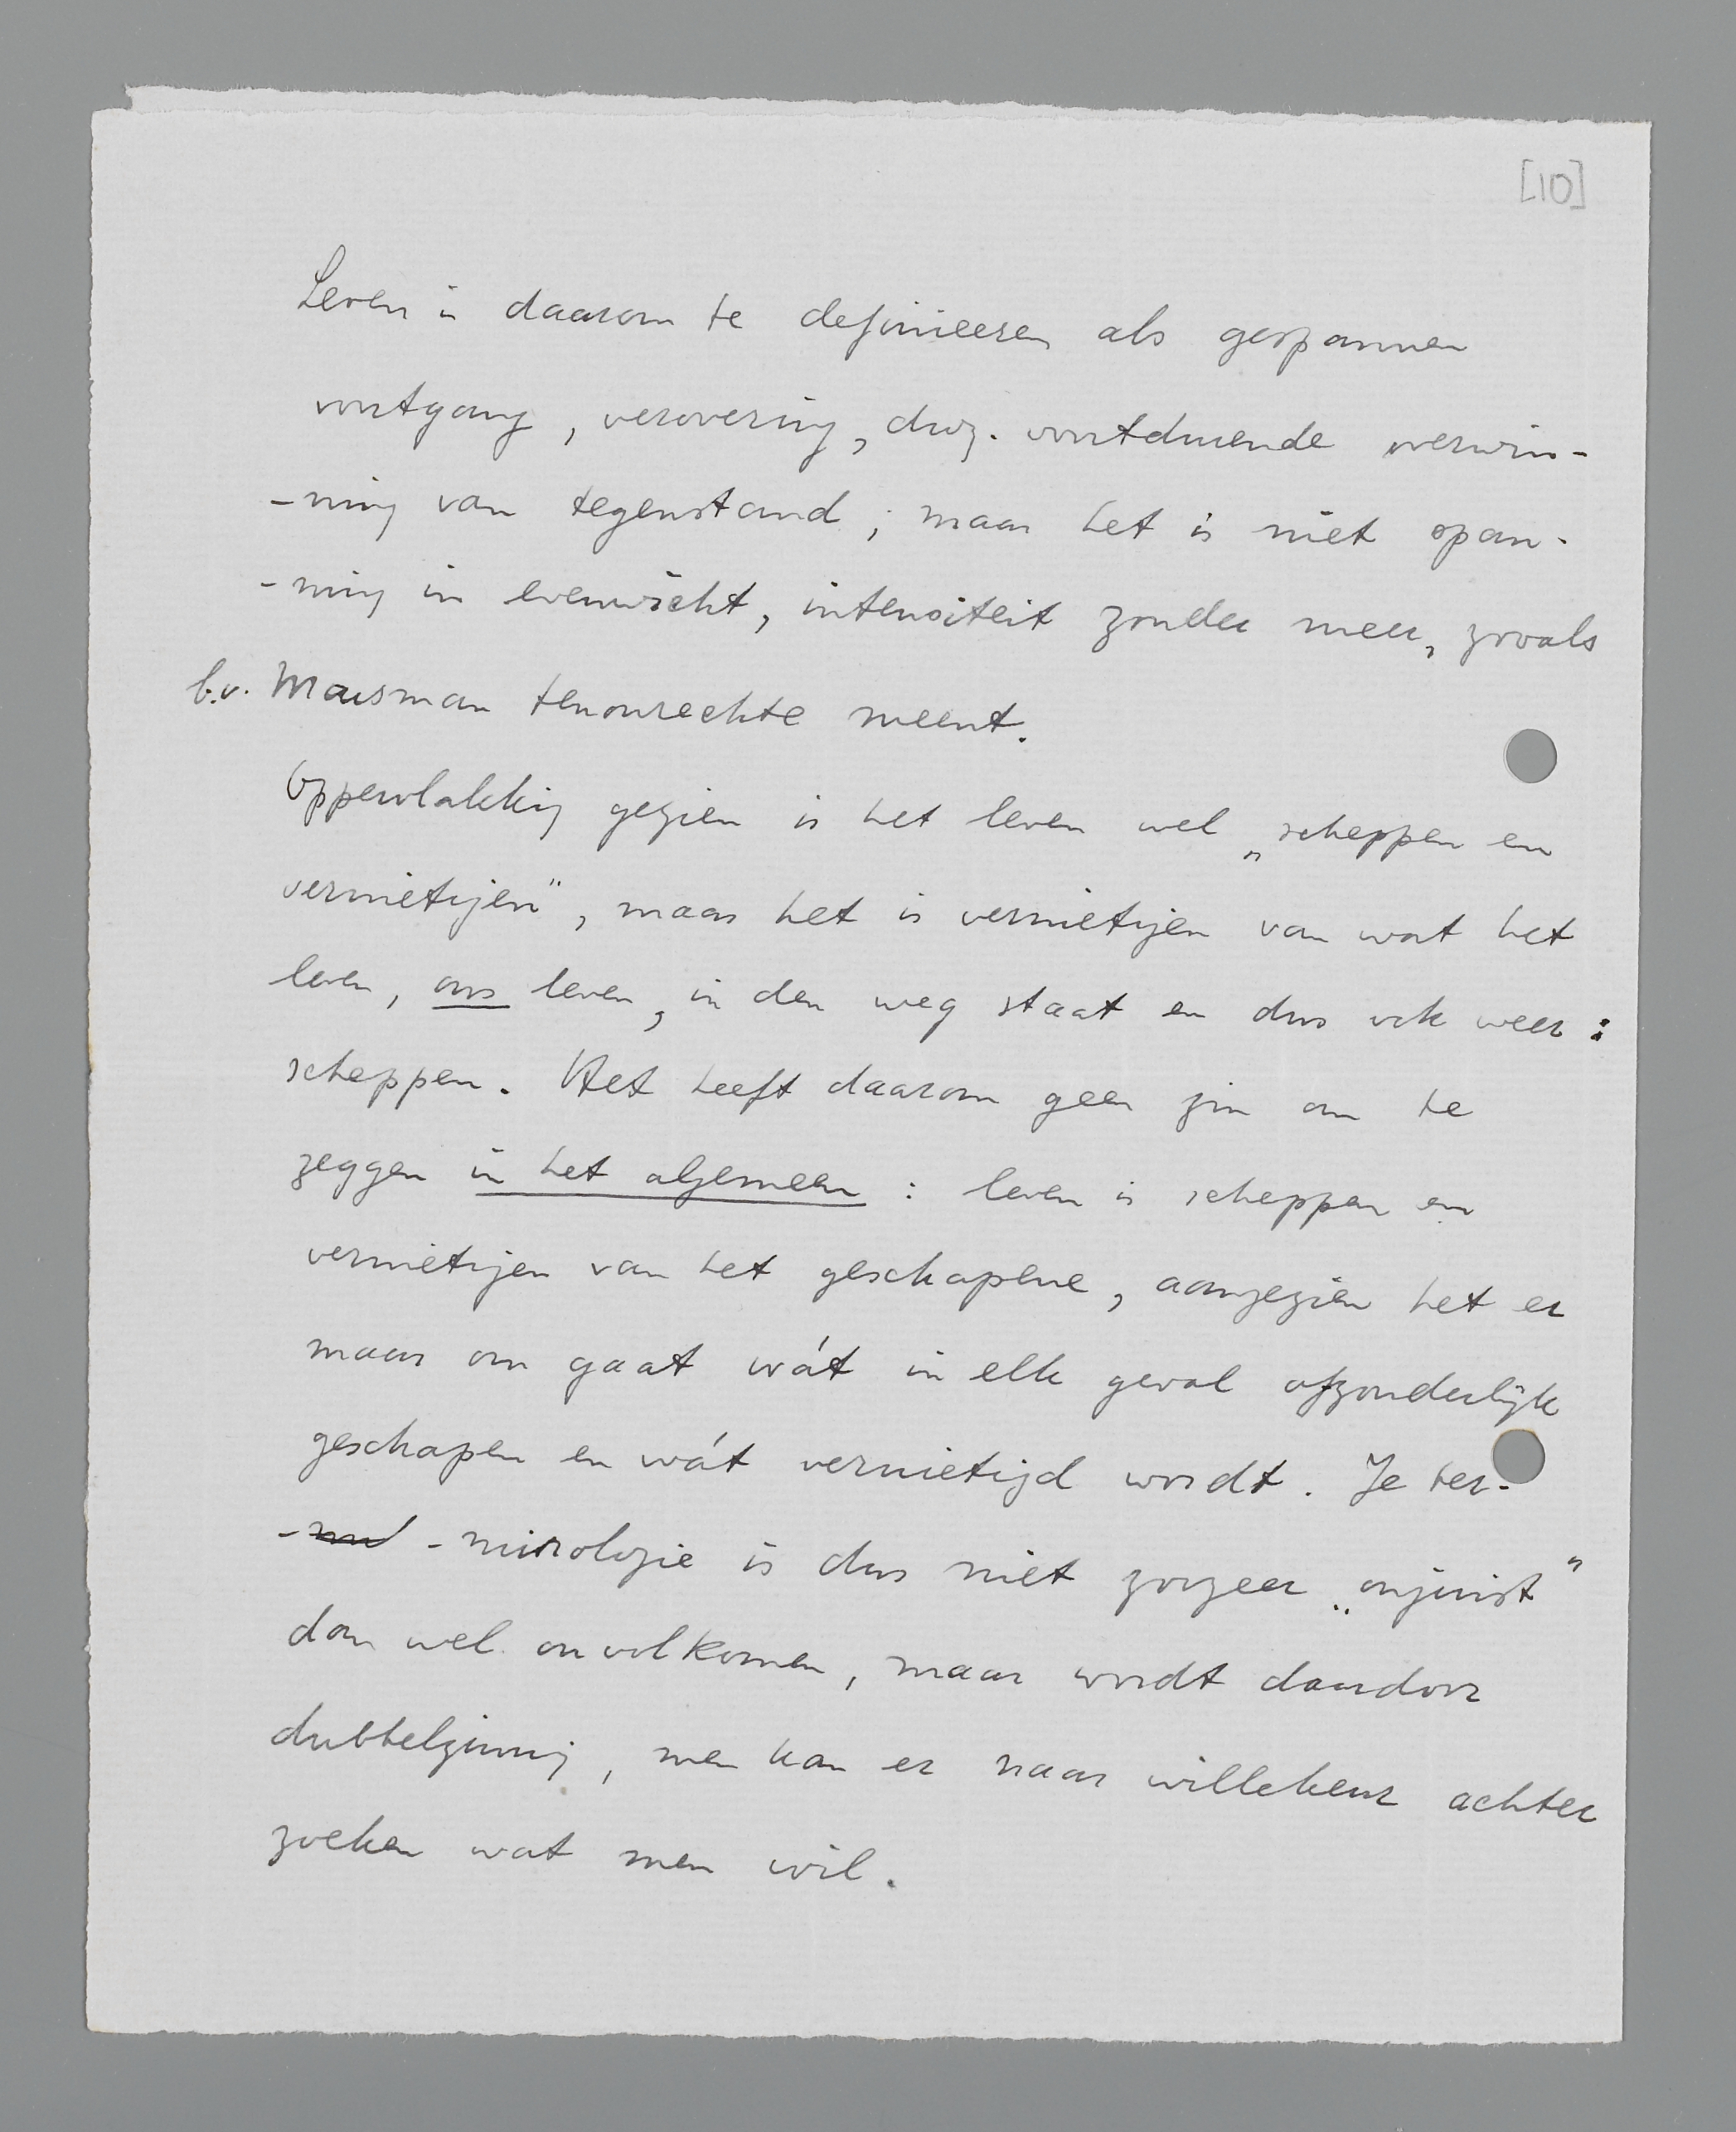 [10]
Leven is daarom te definieeren als gespannen
voortgang, verovering, dwz. voortdurende overwin-
-ning van tegenstand; maar het is niet span-
-ning in evenwicht, intensiteit zonder meer, zooals
b.v. Marsman tenonrechte meent.
Oppervlakkig gezien is het leven wel „scheppen en
vernietigen", maar het is vernietigen van wat het
leven, ons leven, in den weg staat en dus ook weer:
scheppen. Het heeft daarom geen zin om te
zeggen in het algemeen: leven is scheppen en
vernietigen van het geschapene, aangezien het er
maar om gaat wát in elk geval afzonderlijk
geschapen en wát vernietigd wordt. Je ter-
-minologie is dus niet zoozeer „onjuist"
dan wel onvolkomen, maar wordt daardoor
dubbelzinnig, men kan er naar willekeur achter
zoeken wat men wil.